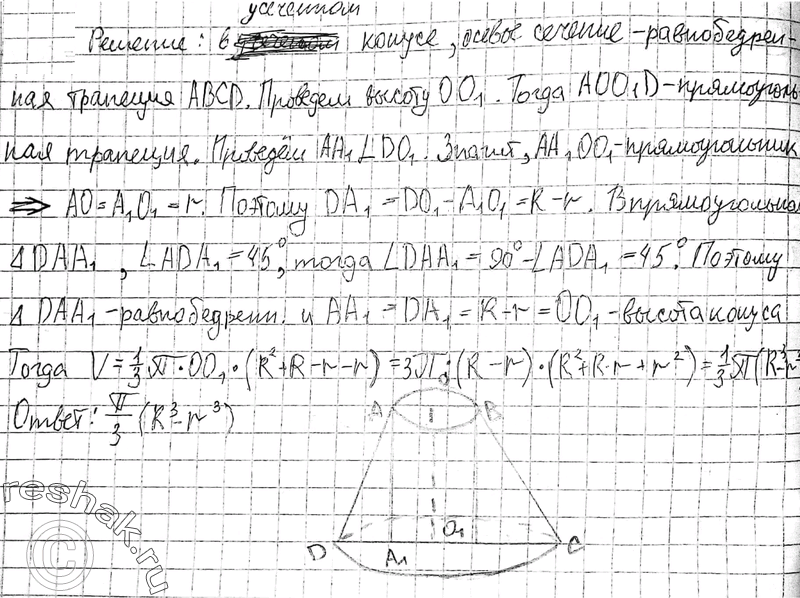 усеченном
Решение: в усеченом конусе, осевое сечение -равнобедрен-
ная трапеция ABCD. Проведем высоту OO₁. Тогда AOO₁D-прямоуголь
ная трапеция. Проведём AA₁⊥DO₁. Значит, AA₁OO₁-прямоугольник
⇒ AO=A₁O₁=r. Поэтому DA₁=DO₁-A₁O₁=R-r. В прямоугольном
Δ DAA₁, ∠ADA₁=45°, тогда ∠DAA₁=90°-∠ADA₁=45°. Поэтому
Δ DAA₁-равнобедренн. и AA₁=DA₁=R-r=OO₁-высота конуса
Тогда V=1/3π·OO₁·(R²+R-r-r)=3π·(R-r)·(R²+R·r+r²)=1/3π(R³-r³
Ответ: π/3(R³-r³)
O
A B
O₁
D A₁ C
reshak.ru
©